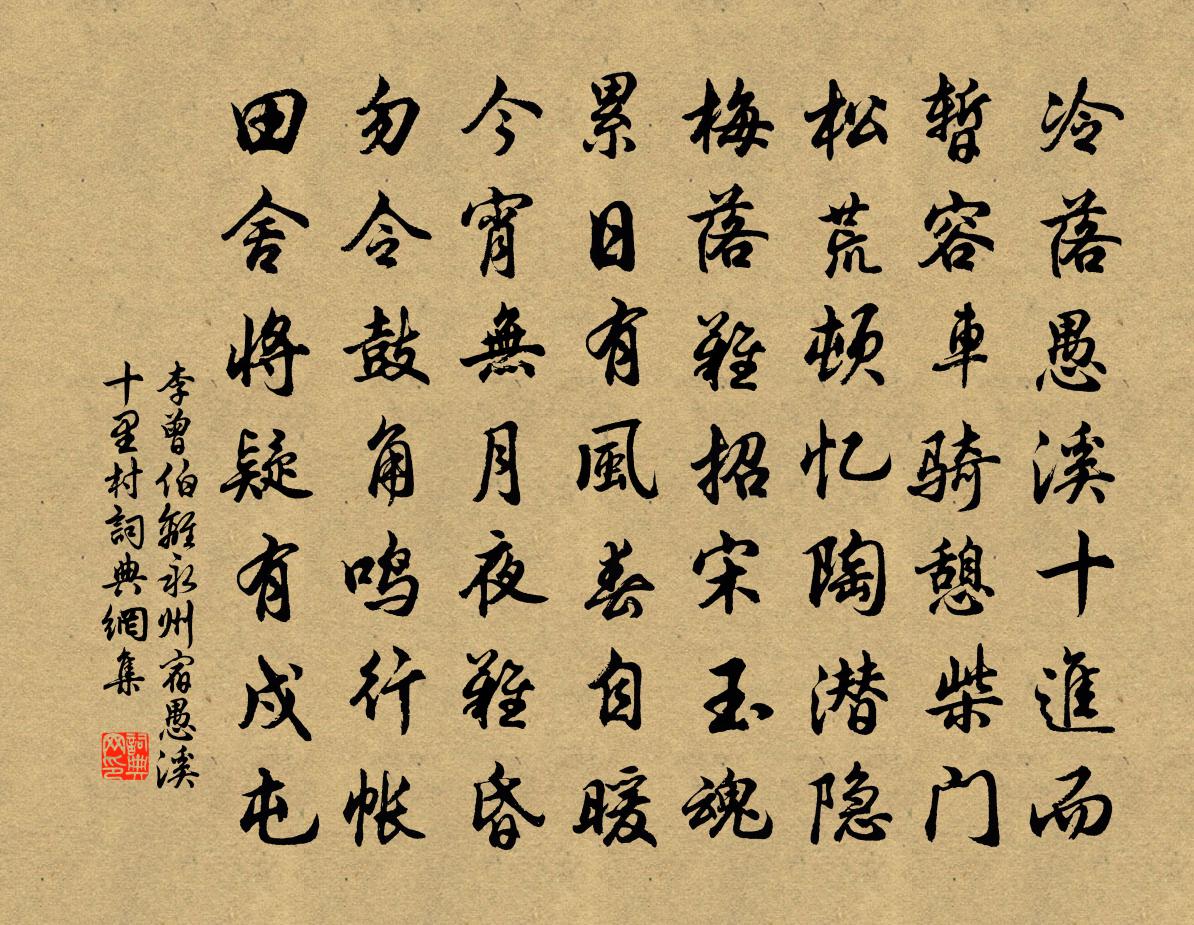 冷落愚溪十進而
暫容車骑憩柴门
松荒顿忆陶潜隐
梅落難招宋玉魂
累日有風春自暖
今宵無月夜難昏
勿令鼓角鸣行帐
田舍將疑有戍屯
李曾伯離永州宿愚溪
十里村詞典網集
詞典网印